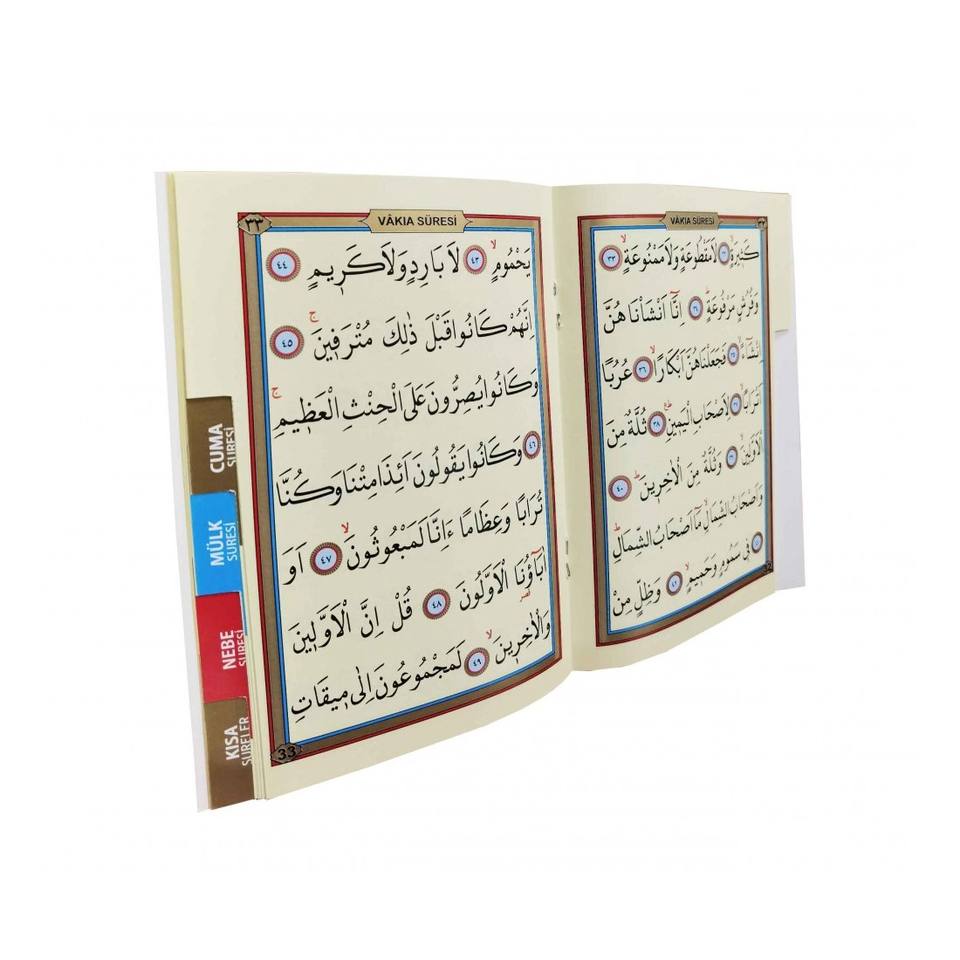 VÂKIA SÛRESİ
كَثِيرَةٍ ٣٢ لَا مَقْطُوعَةٍ وَلَا مَمْنُوعَةٍ ٣٣
وَفُرُشٍ مَرْفُوعَةٍ ٣٤ اِنَّٓا اَنْشَأْنَاهُنَّ
اِنْشَٓاءً ٣٥ فَجَعَلْنَاهُنَّ اَبْكَارًا ٣٦ عُرُبًا
اَتْرَابًا ٣٧ لِاَصْحَابِ الْيَمِينِ ٣٨ ثُلَّةٌ مِنَ
الْاَوَّلِينَ ٣٩ وَثُلَّةٌ مِنَ الْاٰخِرِينَ ٤٠
وَاَصْحَابُ الشِّمَالِ مَٓا اَصْحَابُ الشِّمَالِ
٤١ فِي سَمُومٍ وَحَمِيمٍ ٤٢ وَظِلٍّ مِنْ
٣٣ VÂKIA SÛRESİ
يَحْمُومٍ ٤٣ لَا بَارِدٍ وَلَا كَرِيمٍ ٤٤
اِنَّهُمْ كَانُوا قَبْلَ ذٰلِكَ مُتْرَفِينَ ٤٥
وَكَانُوا يُصِرُّونَ عَلَى الْحِنْثِ الْعَظِيمِ
٤٦ وَكَانُوا يَقُولُونَ اَئِذَا مِتْنَا وَكُنَّا
تُرَابًا وَعِظَامًا ءَاِنَّا لَمَبْعُوثُونَ ٤٧ اَوَ
اٰبَٓاؤُنَا الْاَوَّلُونَ ٤٨ قُلْ اِنَّ الْاَوَّلِينَ
وَالْاٰخِرِينَ ٤٩ لَمَجْمُوعُونَ اِلٰى مِيقَاتِ
33
CUMA
SURESİ
MÜLK
SURESİ
NEBE
SURESİ
KISA
SURELER